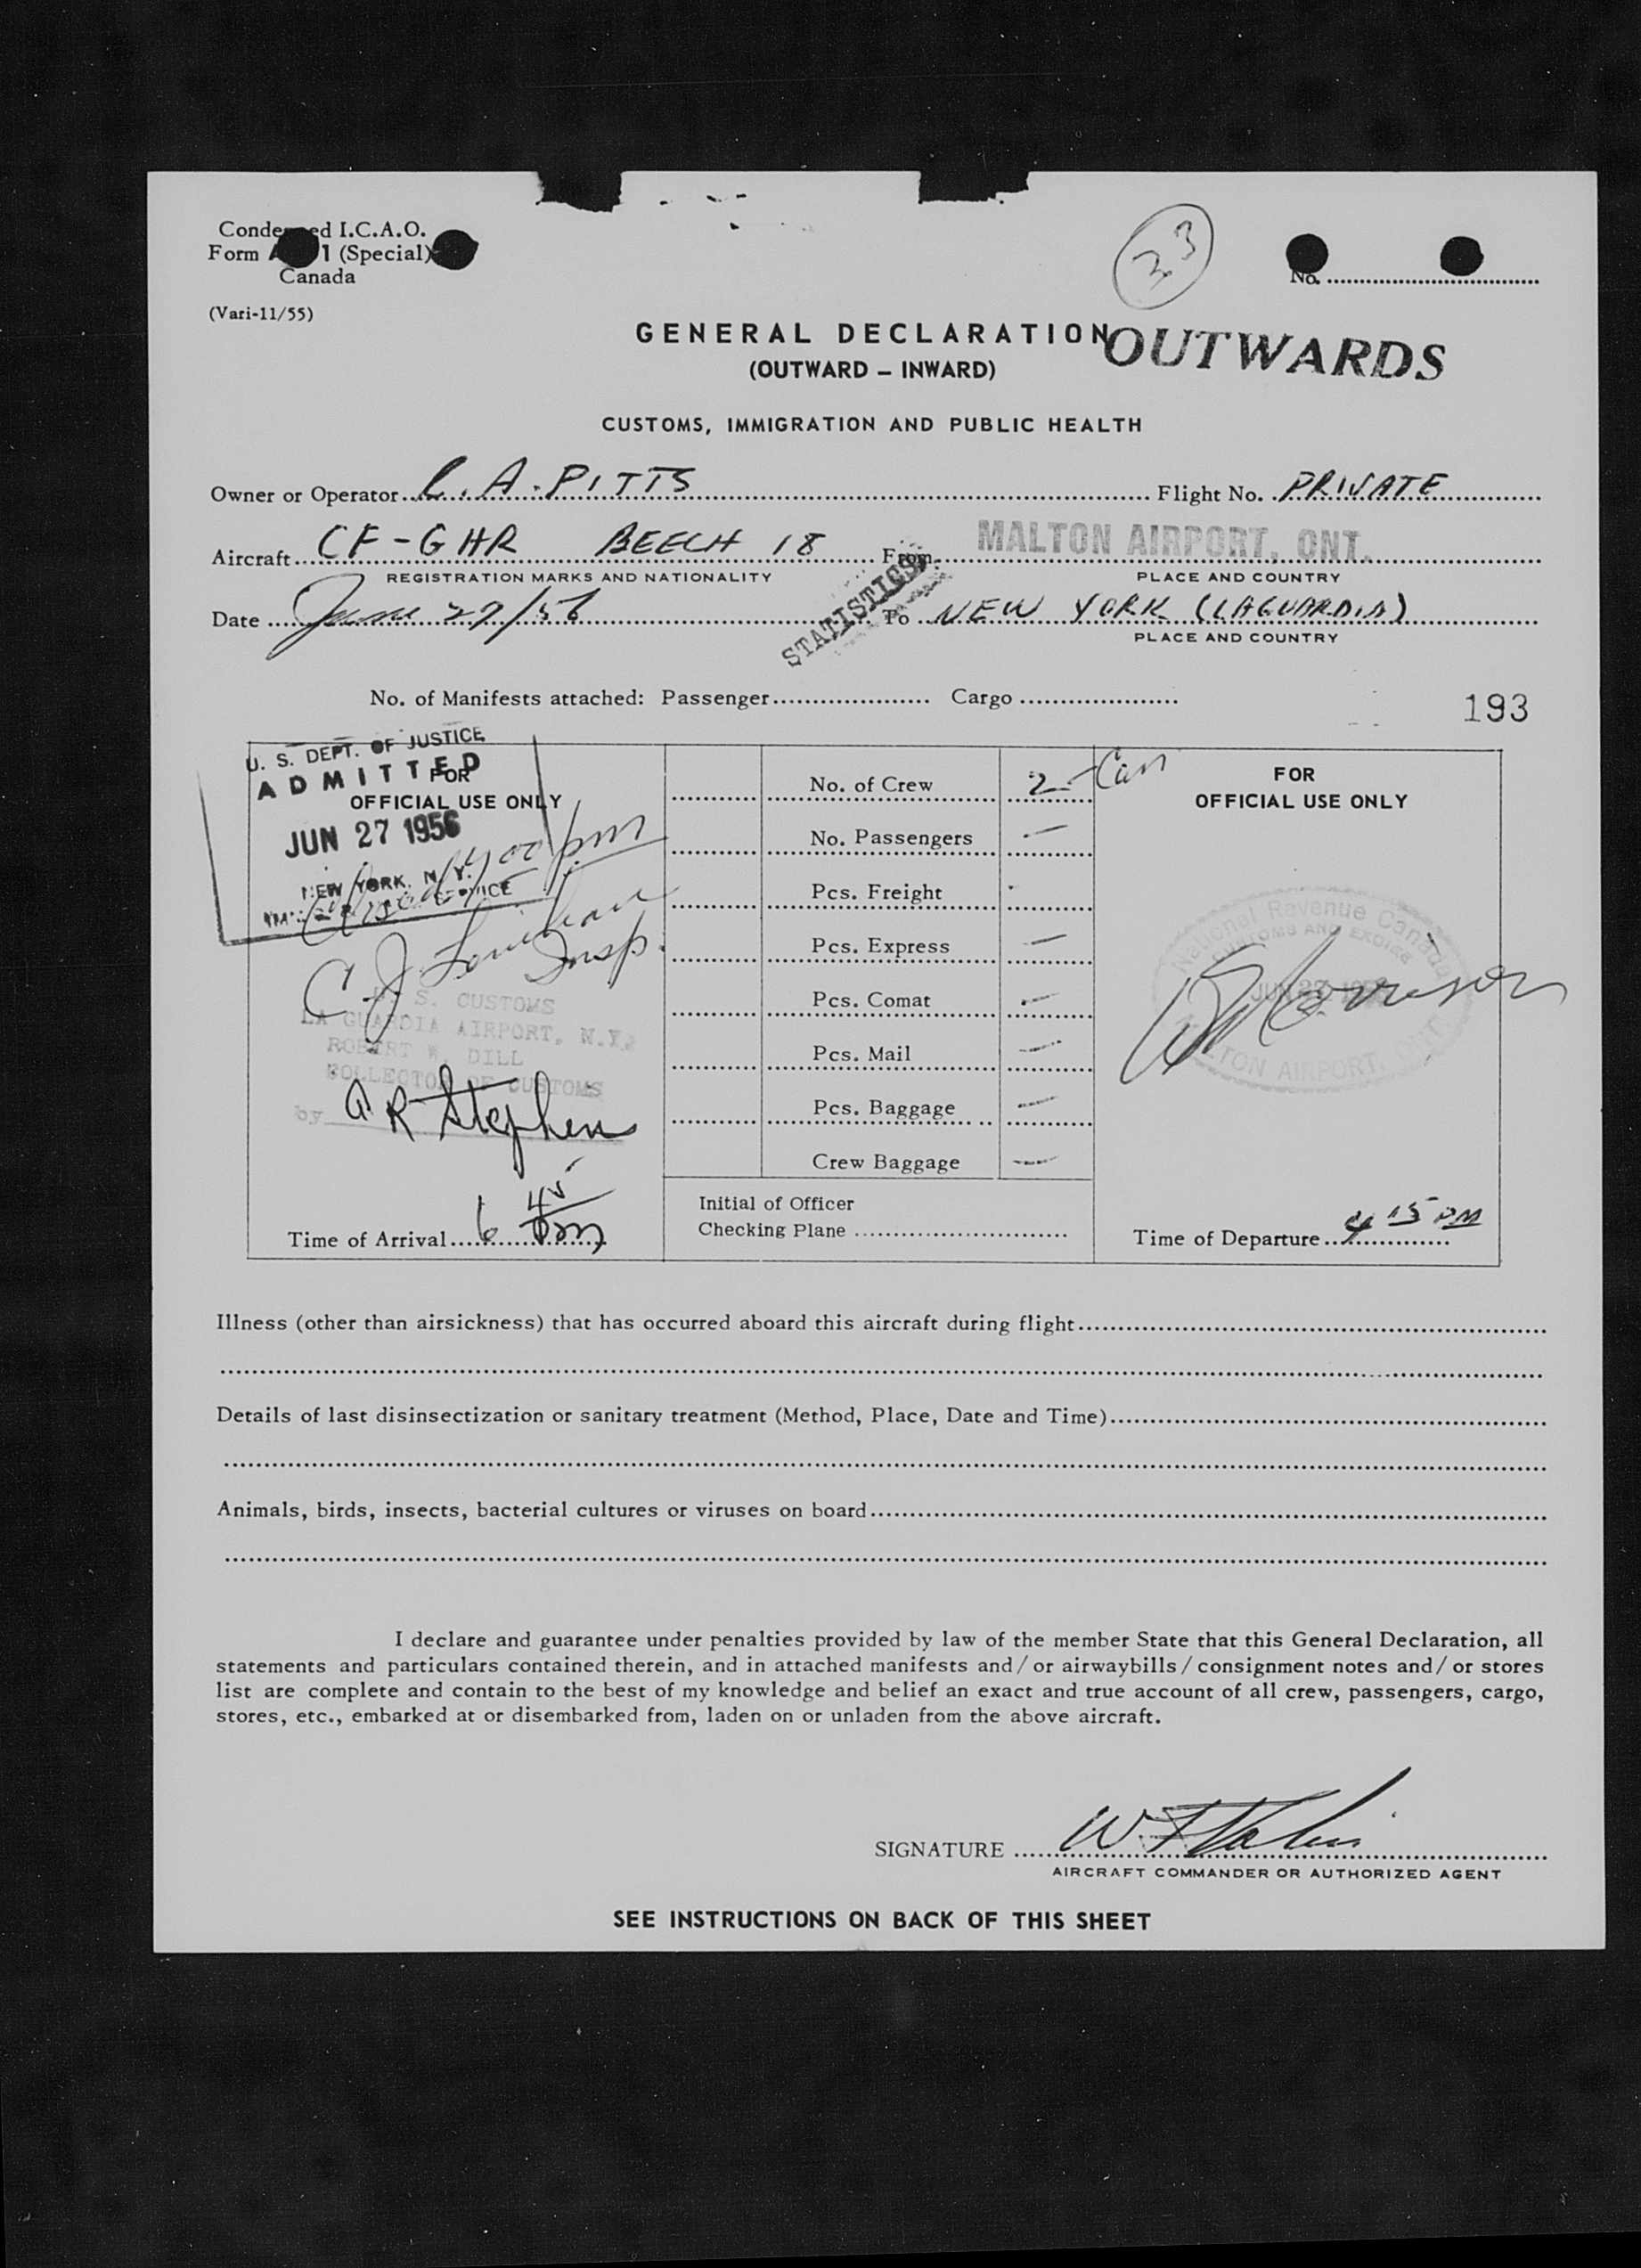 Condensed I.C.A.O.
Form 1 (Special)
Canada
(Vari-11/55)
33
No.
GENERAL DECLARATION OUTWARDS
(OUTWARD – INWARD)
CUSTOMS, IMMIGRATION AND PUBLIC HEALTH
Owner or Operator A. PITTS Flight No. PRIVATE
Aircraft CF-GHR BEECH 18 From MALTON AIRPORT, ONT.
REGISTRATION MARKS AND NATIONALITY PLACE AND COUNTRY
Date June 27/56 STATISTICS To NEW YORK (LAGUARDIA)
PLACE AND COUNTRY
No. of Manifests attached: Passenger Cargo
193
U. S. DEPT. OF JUSTICE
ADMITTED
FOR
OFFICIAL USE ONLY
JUN 27 1956
NEW YORK, N. Y.
SERVICE
700 pm
C J
Insp.
U. S. CUSTOMS
LA GUARDIA AIRPORT, N.Y.
ROBERT W. DILL
COLLECTOR OF CUSTOMS
by R Stephen
Time of Arrival 6 45 pm
No. of Crew 2 - Can
No. Passengers —
Pcs. Freight -
Pcs. Express —
Pcs. Comat —
Pcs. Mail —
Pcs. Baggage —
Crew Baggage —
Initial of Officer
Checking Plane
FOR
OFFICIAL USE ONLY
National Revenue Canada
CUSTOMS AND EXCISE
JUN 27 1956
MALTON AIRPORT, ONT.
Time of Departure 4 15 PM
Illness (other than airsickness) that has occurred aboard this aircraft during flight
Details of last disinsectization or sanitary treatment (Method, Place, Date and Time)
Animals, birds, insects, bacterial cultures or viruses on board
I declare and guarantee under penalties provided by law of the member State that this General Declaration, all
statements and particulars contained therein, and in attached manifests and/or airwaybills/consignment notes and/or stores
list are complete and contain to the best of my knowledge and belief an exact and true account of all crew, passengers, cargo,
stores, etc., embarked at or disembarked from, laden on or unladen from the above aircraft.
SIGNATURE
AIRCRAFT COMMANDER OR AUTHORIZED AGENT
SEE INSTRUCTIONS ON BACK OF THIS SHEET